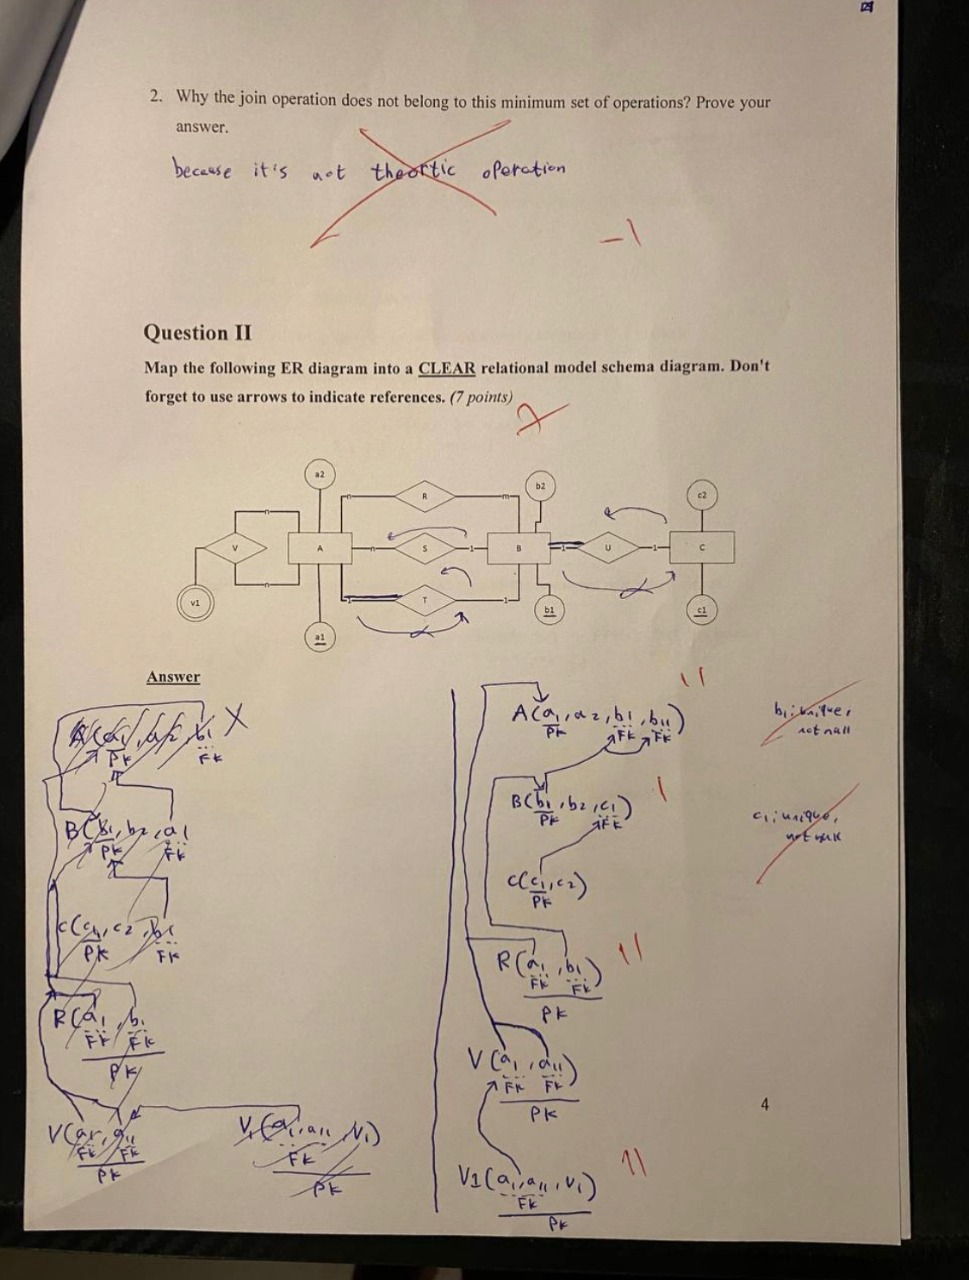 2. Why the join operation does not belong to this minimum set of operations? Prove your
answer.
because it's not theortic operation
-1
Question II
Map the following ER diagram into a CLEAR relational model schema diagram. Don't
forget to use arrows to indicate references. (7 points)
7
a2
b2
c2
n
R
m
n
V
A
n
S
1
B
1
U
1
C
n
1
T
1
v1
a1
b1
c1
Answer
A(a1, a2, b1) X
PK
FK
B(b1, b2, a1
PK
FK
C(c1, c2, b1
PK
FK
R(a1, b1
FK FK
PK
V(a1, a11
FK FK
PK
V1(a1, a11, v1)
FK
PK
A(a1, a2, b1, b11)
PK
FK FK
b1: unique,
not null
B(b1, b2, c1)
PK
FK
c1: unique,
not null
C(c1, c2)
PK
R(a1, b1)
FK FK
PK
V(a1, a11)
FK FK
PK
4
V1(a1, a11, v1)
FK
PK